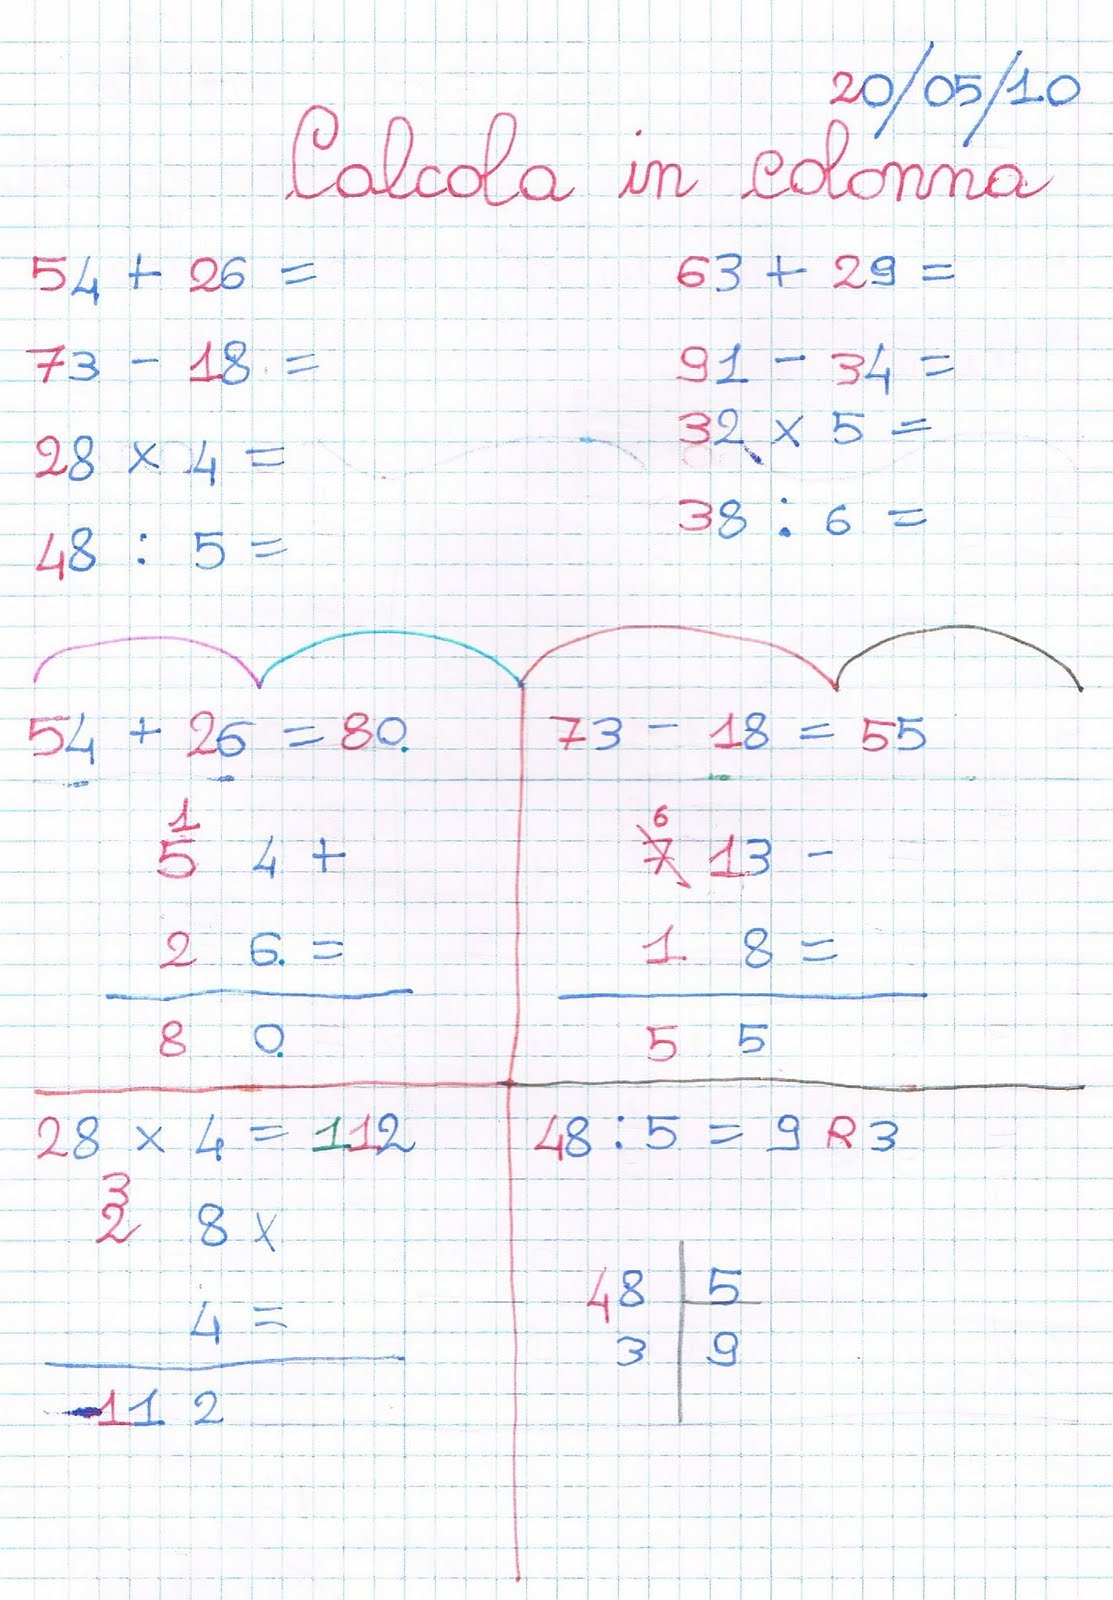 20/05/10
Calcola in colonna
54 + 26 =
73 - 18 =
28 x 4 =
48 : 5 =
63 + 29 =
91 - 34 =
32 x 5 =
38 : 6 =
54 + 26 = 80.
1
5 4 +
2 6. =
8 0.
73 - 18 = 55
6
7 13 -
1. 8 =
5 5
28 x 4 = 112
3
2 8 x
4 =
112
48 : 5 = 9 R 3
48 5
3 9